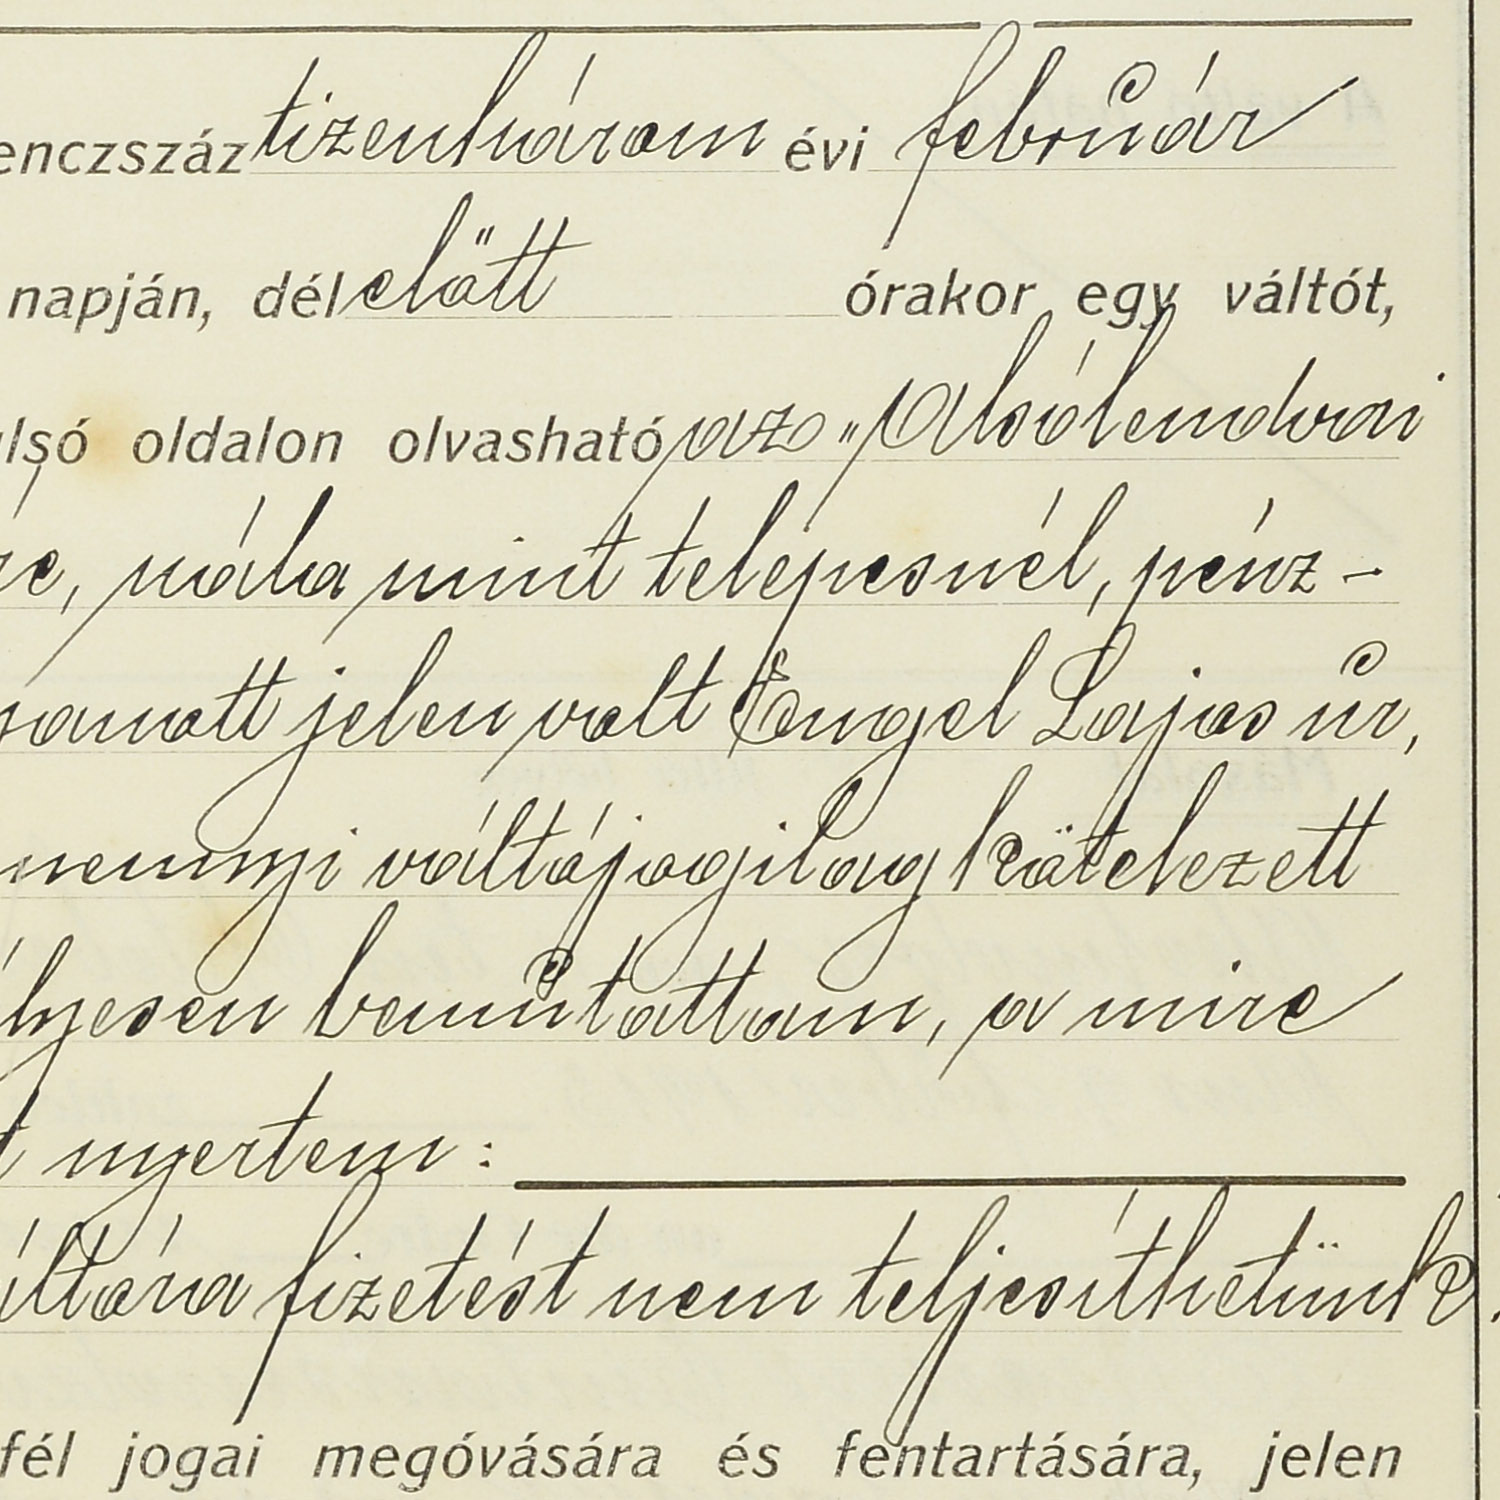 enczszáz tizenhárom évi február
napján, dél előtt órakor egy váltót,
ulsó oldalon olvasható az „Alsólendvai
re, nála mint telepesnél, pénz-
hanott jelen volt Engel Lajos úr,
nemnyi váltójogilag kötelezett
lyesen bemutattam, a mire
t nyertem:
últána fizetést nem teljesíthetünk.
fél jogai megóvására és fentartására, jelen